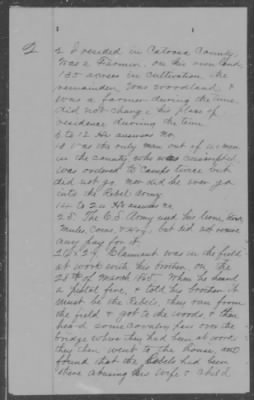 2
2 I resided in Catoosa County
Was a Farmer, on his own land
130 acres in cultivation the
remainder was woodland, &
was a farmer during the time
did not change his place of
residence during the time
3 to 12 He answers no.
13 Was the only man out of women
in the county, who was conscripted
was ordered to camps twice but
did not go nor did he ever go
into the Rebel Army
14 to 24 He answers no
25. The C.S. Army used his
Mules, corn & Hay, but did not receive
any pay for it.
26 & 27. Claimant was in the field
at work with his brother, on the
28th of March 1865 When he heard
a pistol fire, & told his brother it
must be the Rebels, they ran from
the field & got to the woods, & then
heard some Cavalry pass over the
bridge where they had been at work
they then went to the house, and
found that the Rebels had been
there abusing his Wife & child